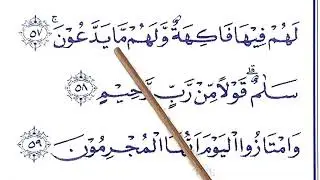 لَهُمْ فِيهَا فَاكِهَةٌ وَّلَهُمْ مَّا يَدَّعُوْنَ ۚ ٥٧
سَلٰمٌ ۫ قَوْلًا مِّنْ رَّبٍّ رَّحِيْمٍ ٥٨
وَامْتَازُوا الْيَوْمَ اَيُّهَا الْمُجْرِمُوْنَ ٥٩